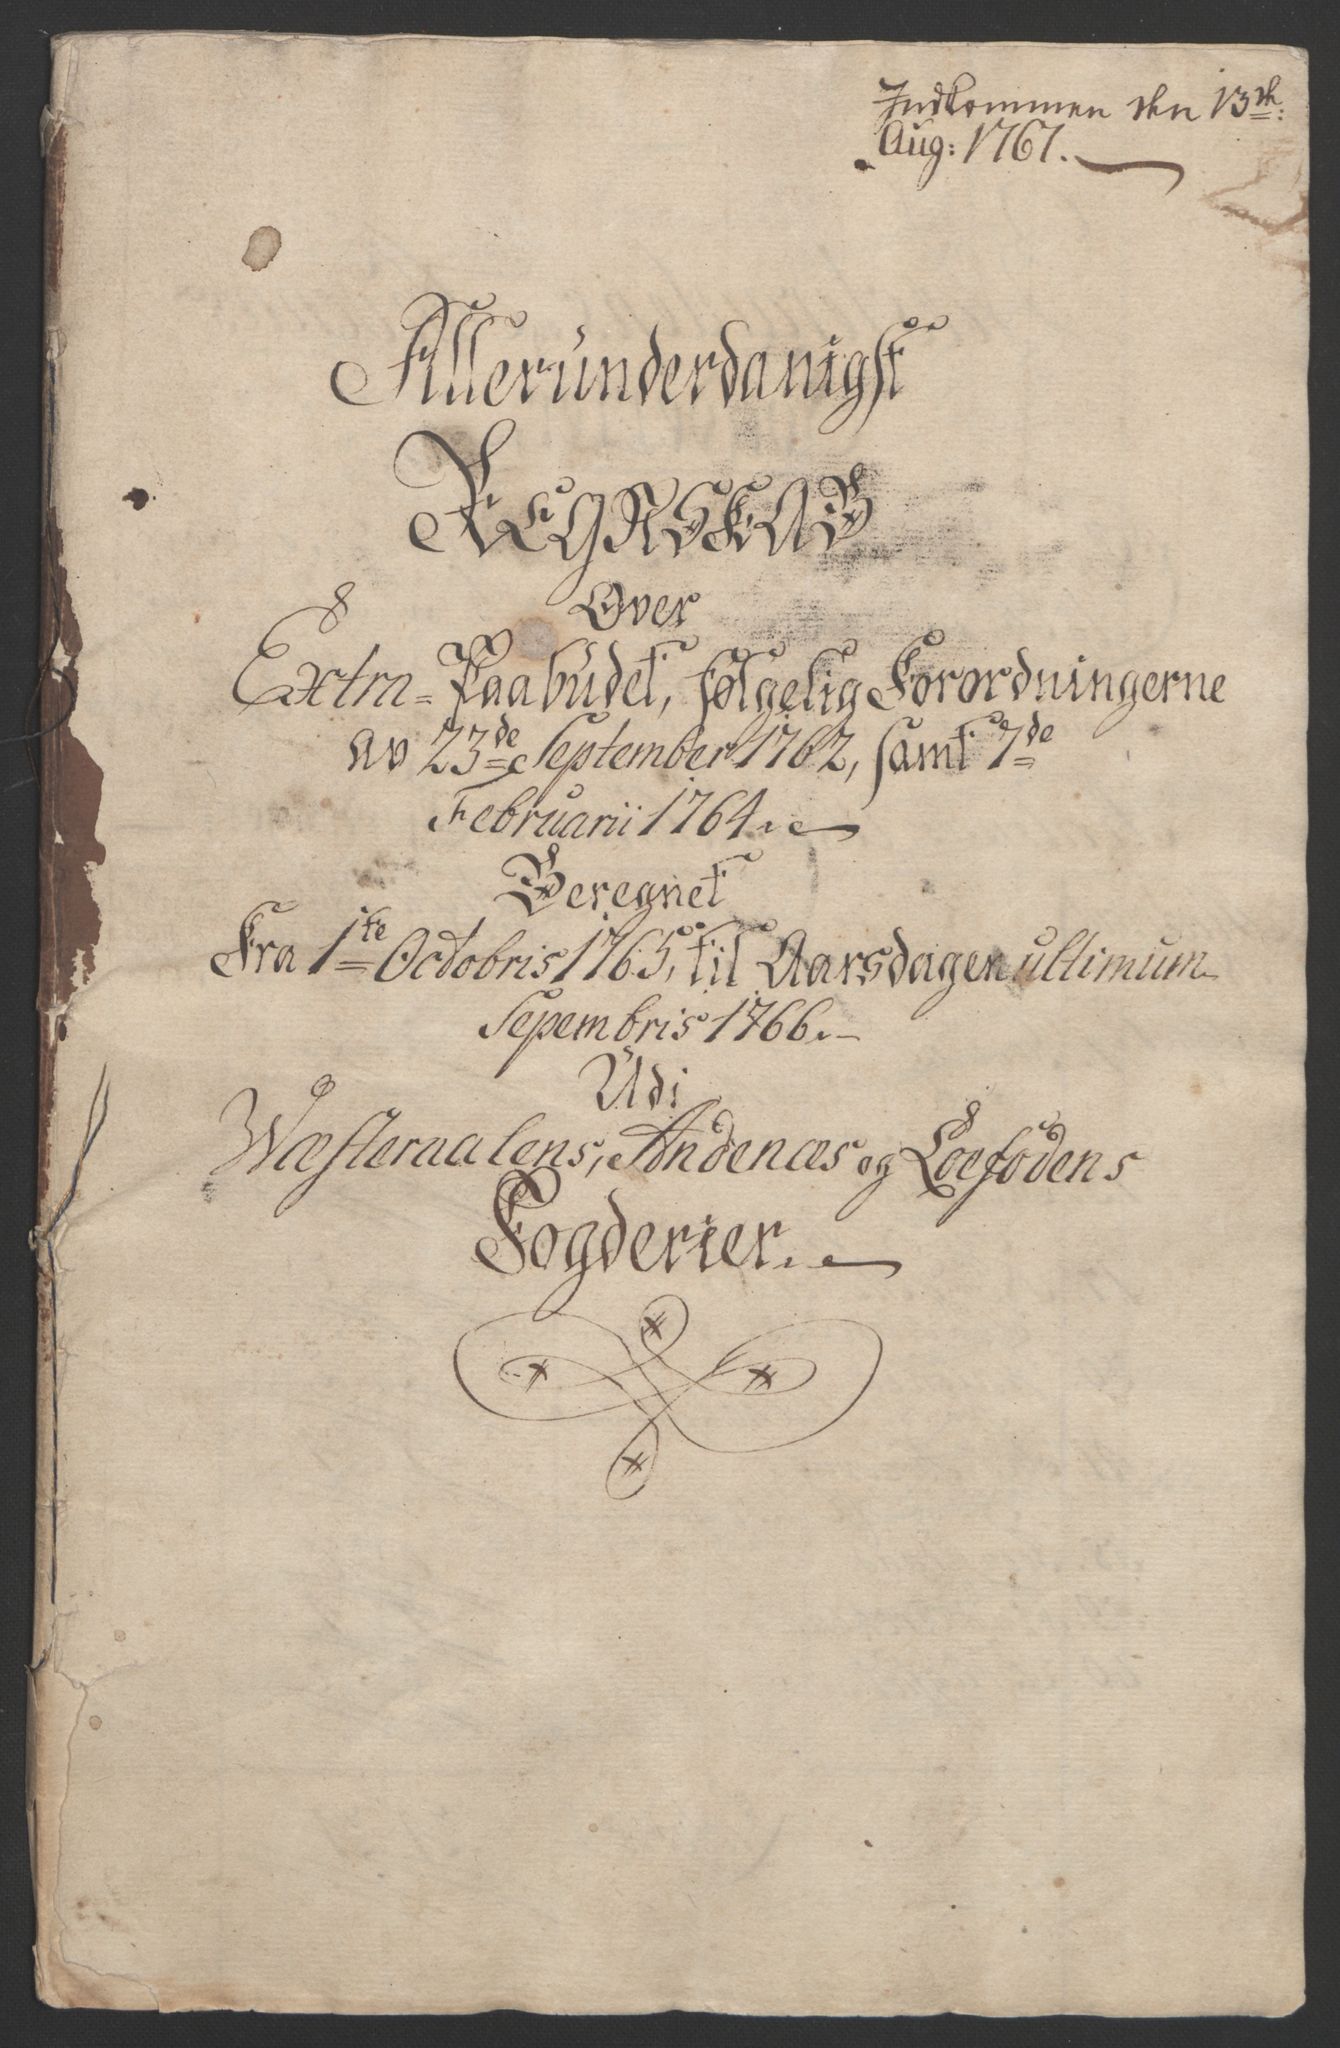 Indkommen den 13de:
Aug: 1767.
Alleründerdanigst
REGNSKAB
Over
Extra=Paabüdet, følgelig Forordningerne
av 23de September 1762, samt 7de
Februarii 1764.
Beregnet
Fra 1te Octobris 1765, til Aarsdagen ultimum
Sepembris 1766.
Udi
Wæsteraalens, Andenæs og Loefodens
Fogderier.